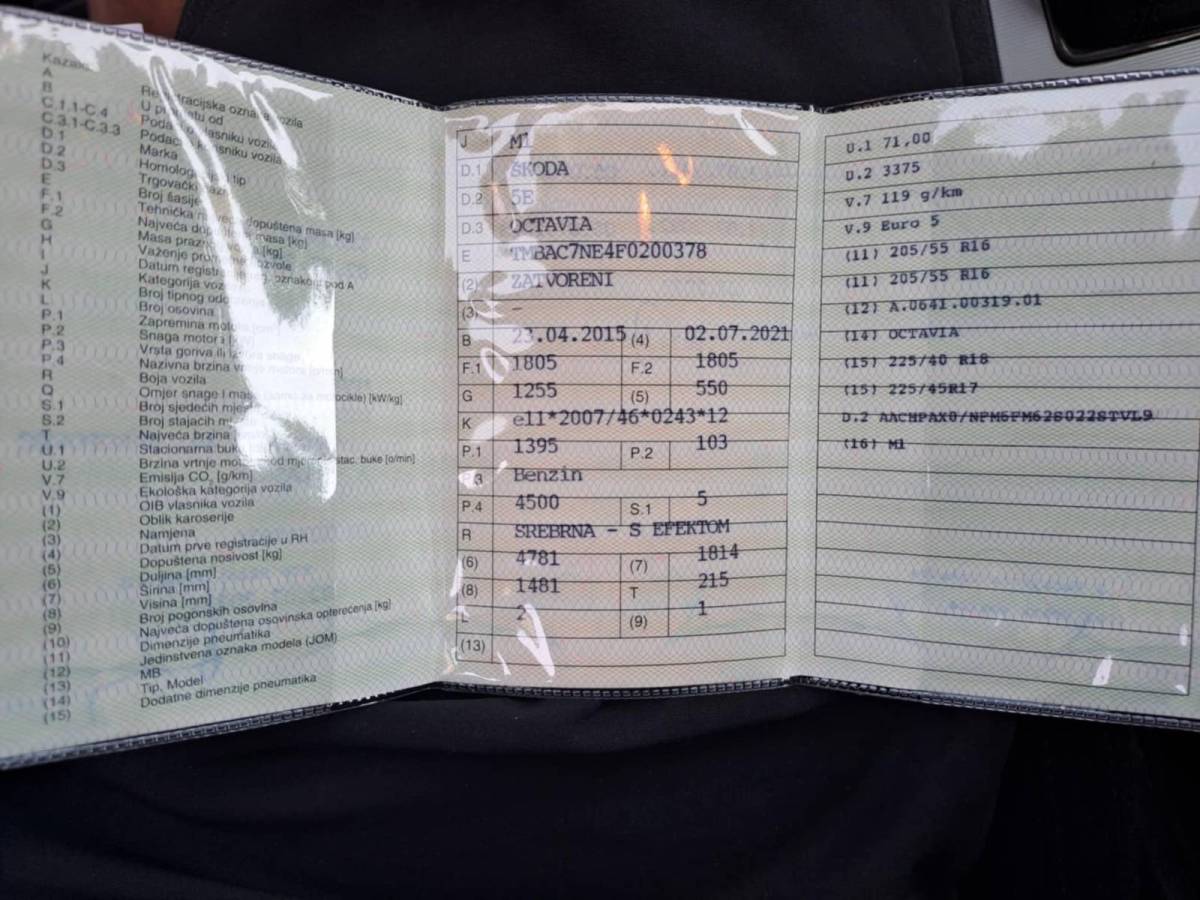 Kazalo
A
B
C.1.1-C.4
C.3.1-C.3.3
D.1
D.2
D.3
E
F.1
F.2
G
H
I
J
K
L
P.1
P.2
P.3
P.4
R
Q
S.1
S.2
T
U.1
U.2
V.7
V.9
(1)
(2)
(3)
(4)
(5)
(6)
(7)
(8)
(9)
(10)
(11)
(12)
(13)
(14)
(15)
vozila
U od
vlasniku vozila
korisniku vozila
Marka
tip
Trgovački
Broj šasije
Tehnička dopuštena masa [kg]
Najveća masa [kg]
Masa [kg]
Važenje
Datum pod A
Kategorija
Broj
Broj osovina
Zapremina
Snaga motora
Vrsta goriva ili
Nazivna brzina
Boja vozila
Omjer snage i [kW/kg]
Broj sjedećih
Broj stajaćih
Najveća brzina
Stacionarna
Brzina vrtnje stac. buke [o/min]
Emisija CO₂ [g/km]
Ekološka kategorija vozila
OIB vlasnika vozila
Oblik karoserije
Namjena
Datum prve registracije u RH
Dopuštena nosivost [kg]
Duljina [mm]
Širina [mm]
Visina [mm]
Broj pogonskih osovina
Najveća dopuštena osovinska opterećenja [kg]
Dimenzije pneumatika
Jedinstvena oznaka modela (JOM)
MB
Tip, Model
Dodatne dimenzije pneumatika
J M1
D.1 ŠKODA
D.2 5E
D.3 OCTAVIA
E TMBAC7NE4F0200378
(2) ZATVORENI
(3) -
B 23.04.2015 (4) 02.07.2021
F.1 1805 F.2 1805
G 1255 (5) 550
K e11*2007/46*0243*12
P.1 1395 P.2 103
P.3 Benzin
P.4 4500 S.1 5
R SREBRNA - S EFEKTOM
(6) 4781 (7) 1814
(8) 1481 T 215
L 2 (9) 1
(13)
U.1 71,00
U.2 3375
V.7 119 g/km
V.9 Euro 5
(11) 205/55 R16
(11) 205/55 R16
(12) A.0641.00319.01
(14) OCTAVIA
(15) 225/40 R18
(15) 225/45R17
D.2 AACHPAX0/NFM6FM62S022STVL9
(16) M1